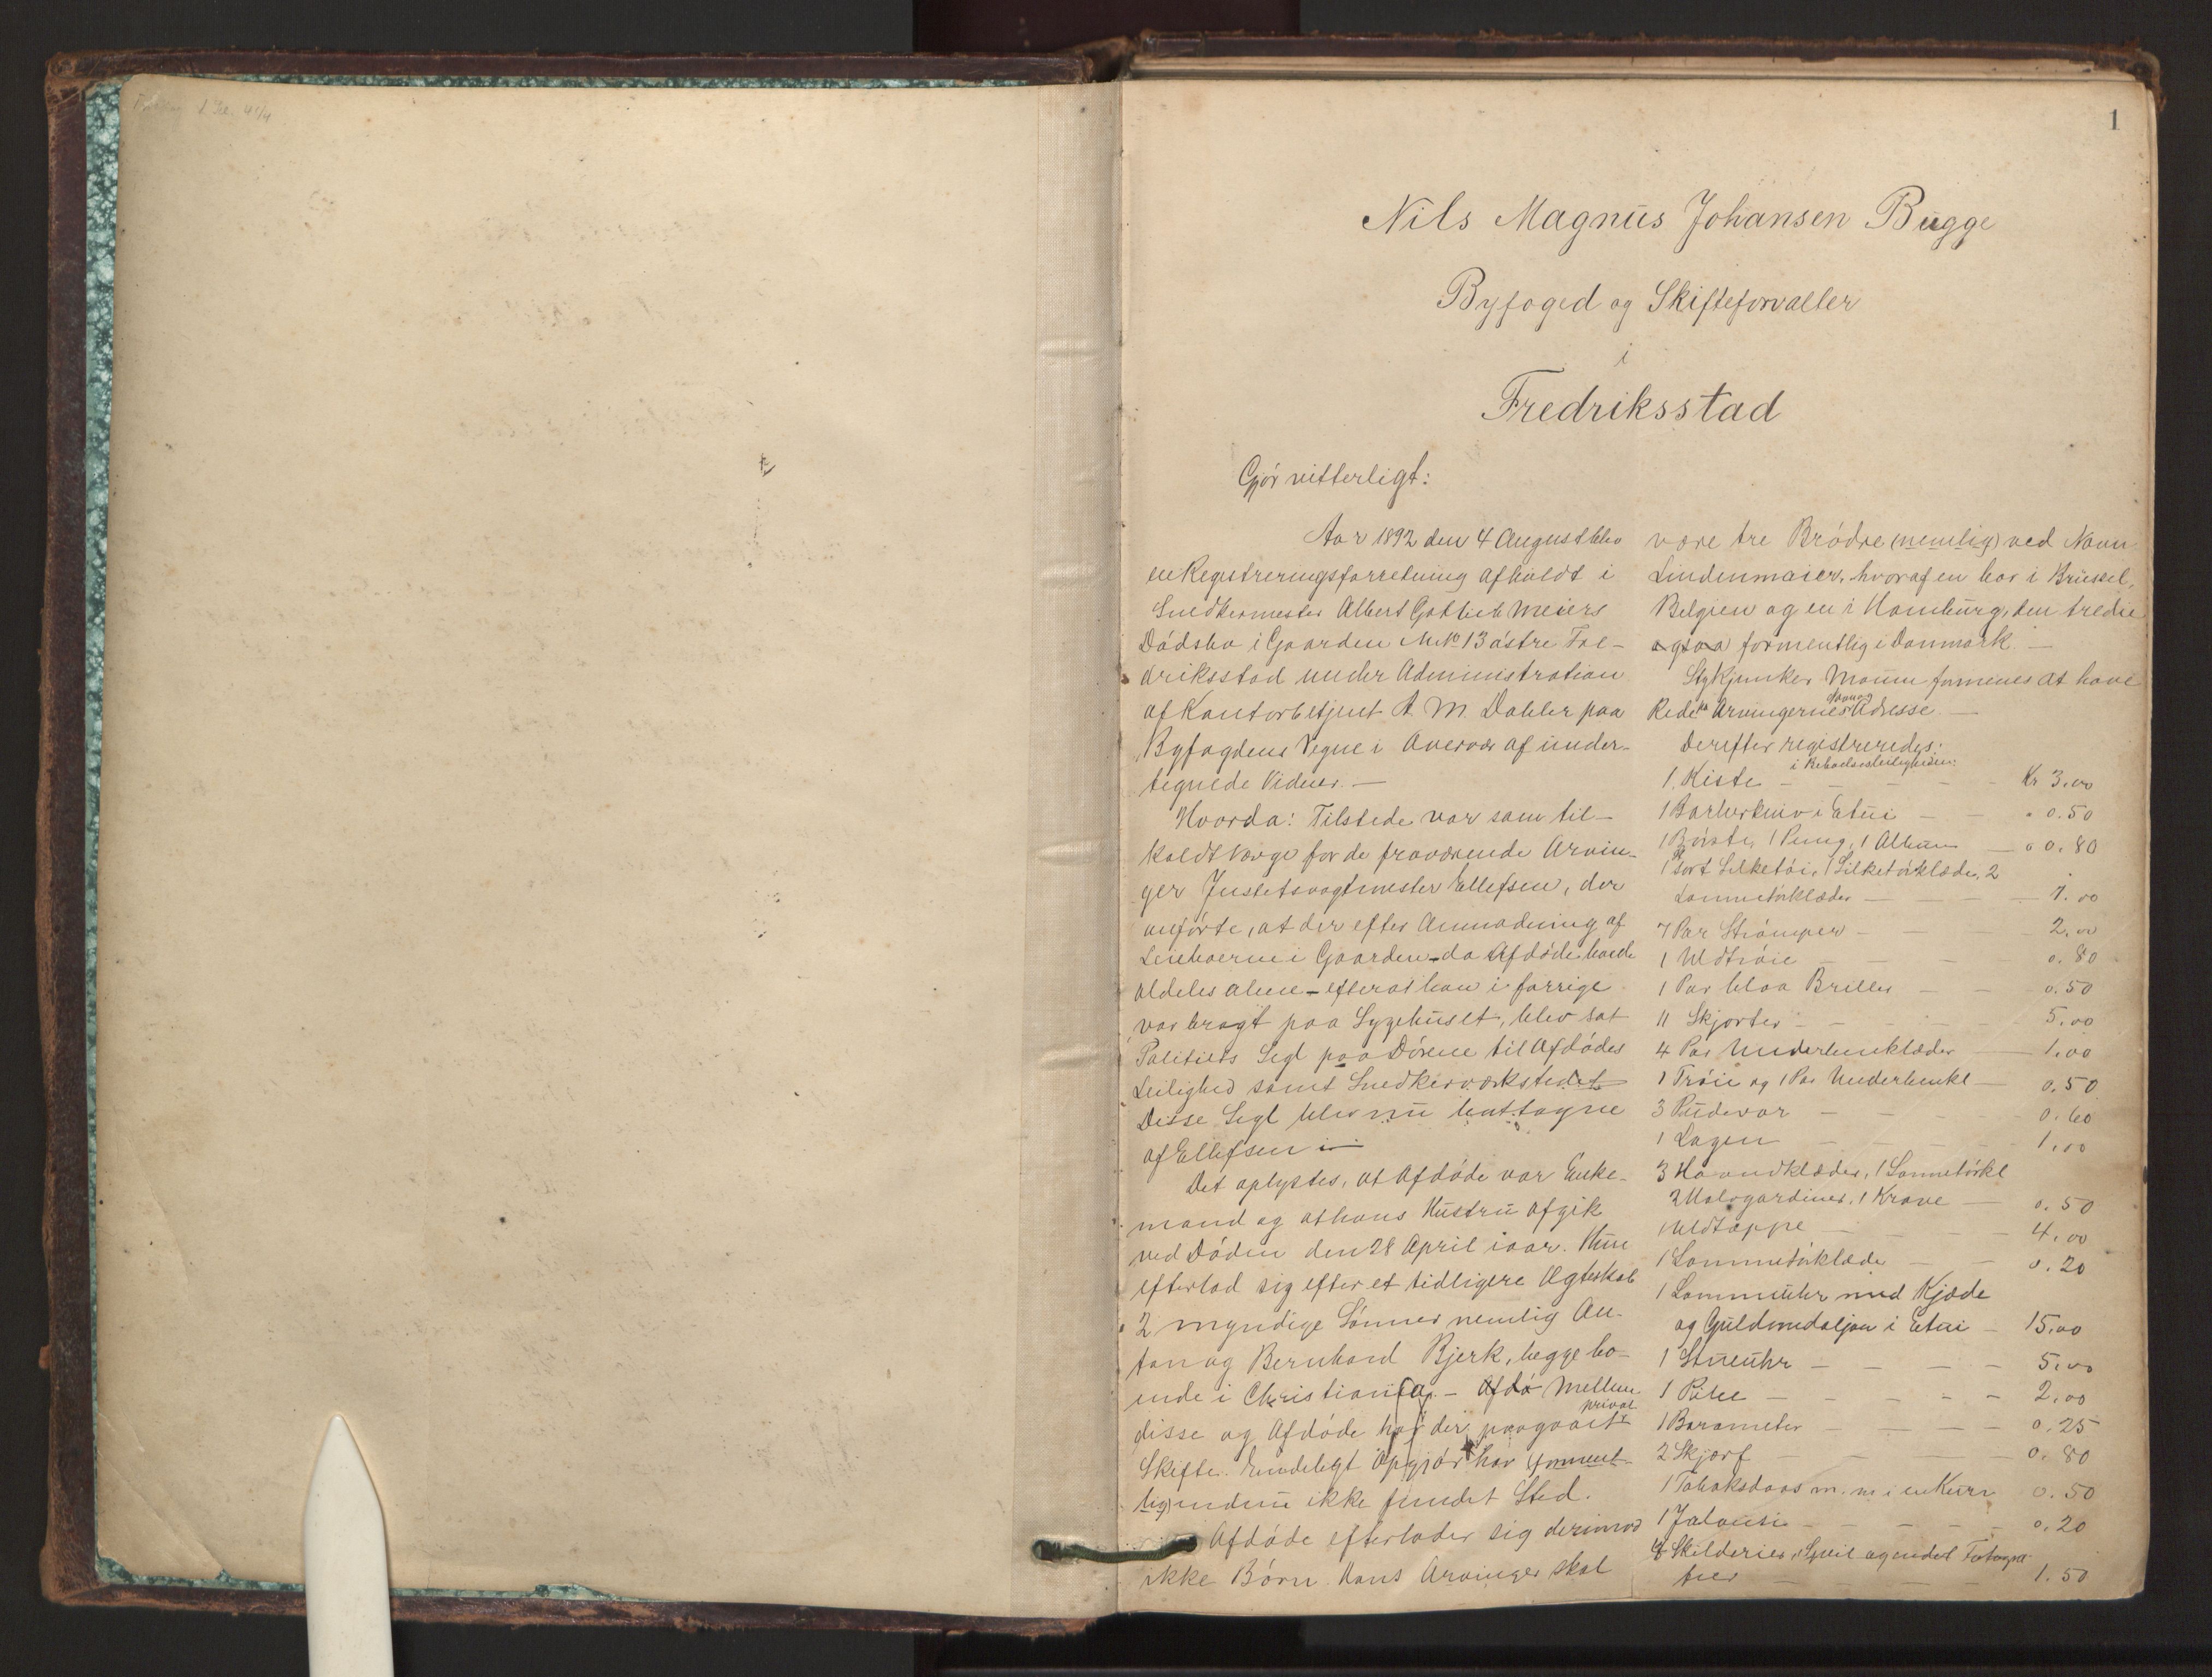 1
Nils Magnus Johansen Bugge
Byfoged og Skifteforvalter
i
Fredriksstad
Gjør vitterligt:
Aar 1892 den 4 August blev
en Registreringsforretning afholdt i
Snedkermester Albert Gottlieb Meiers
Dødsbo i Gaarden Mt No 13 østre Fre-
driksstad under Administration
af Kontorbetjent A. M. Dahler paa
Byfogdens Vegne i Overvær af under-
tegnede Vidner. —
Hvorda: Tilstede var som til-
kaldt Værge for de fraværende Arvin-
ger Justitsvagtmester Ellefsen, der
anførte, at der efter Anmodning af
Leieboerne i Gaarden – da Afdøde boede
aldeles alene – efterat han i forrige
var bragt paa Sygehuset, blev sat
Politiets Segl paa Dørene til Afdødes
Leilighed samt Snedkerværkstedet
Disse Segl blev nu borttagne
af Ellefsen
Det oplystes, at Afdøde var Enke-
mand og at hans Hustru afgik
ved Døden den 28 April iaar. Hun
efterlod sig efter et tidligere Ægteskab
2 myndige Sønner nemlig An-
ton og Bernhard Bjerk, begge bo-
ende i Christiania. – Afdø Mellem
disse og Afdøde har der paagaaet privat
Skifte. Endeligt Opgjør har (forment-
lig) endnu ikke fundet Sted.
Afdøde efterlader sig derimod
ikke Børn. Hans Arvinger skal
være tre Brødre (nemlig) ved Navn
Lindenmaier, hvoraf en bor i Brüssel,
Belgien og en i Hamburg, den tredie
ogsaa formentlig i Danmark. —
Stykjunker Maum formenes at have
Rede paa Arvingernes Adresse. —
Derefter registreredes:
i Beboelsesleiligheden:
1 Kiste — Kr 3.00
1 Barberkniv i Etui — 0.50
1 Børste, 1 Pung, 1 Album — 0.80
1 sort Silketøi, 1 Silketørklæde, 2
Lommetørklæder — 1.00
7 Par Strømper — 2.00
1 Uldtrøie — 0.80
1 Par blaa Briller — 0.50
11 Skjorter — 5.00
4 Par Underbenklæder — 1.00
1 Trøie og 1 Par Underbenkl — 0.50
3 Pudevar — 0.60
1 Lagen — 1.00
3 Haandklæder, 1 Lommetørkl
2 Halsgardiner, 1 Krave — 0.50
1 Uldtæppe — 4.00
1 Lommetørklæde — 0.20
1 Lommeuhr med Kjæde
og Guldmedaljon i Etui — 15.00
1 Stueuhr — 5.00
1 Pibe — 2.00
1 Barometer — 0.25
2 Skjærf — 0.80
1 Tobaksdaas m. m i en Kurv 0.50
1 Jalousi — 0.20
4 Skilderier, 1 Speil og endel Fotogra-
fier — 1.50